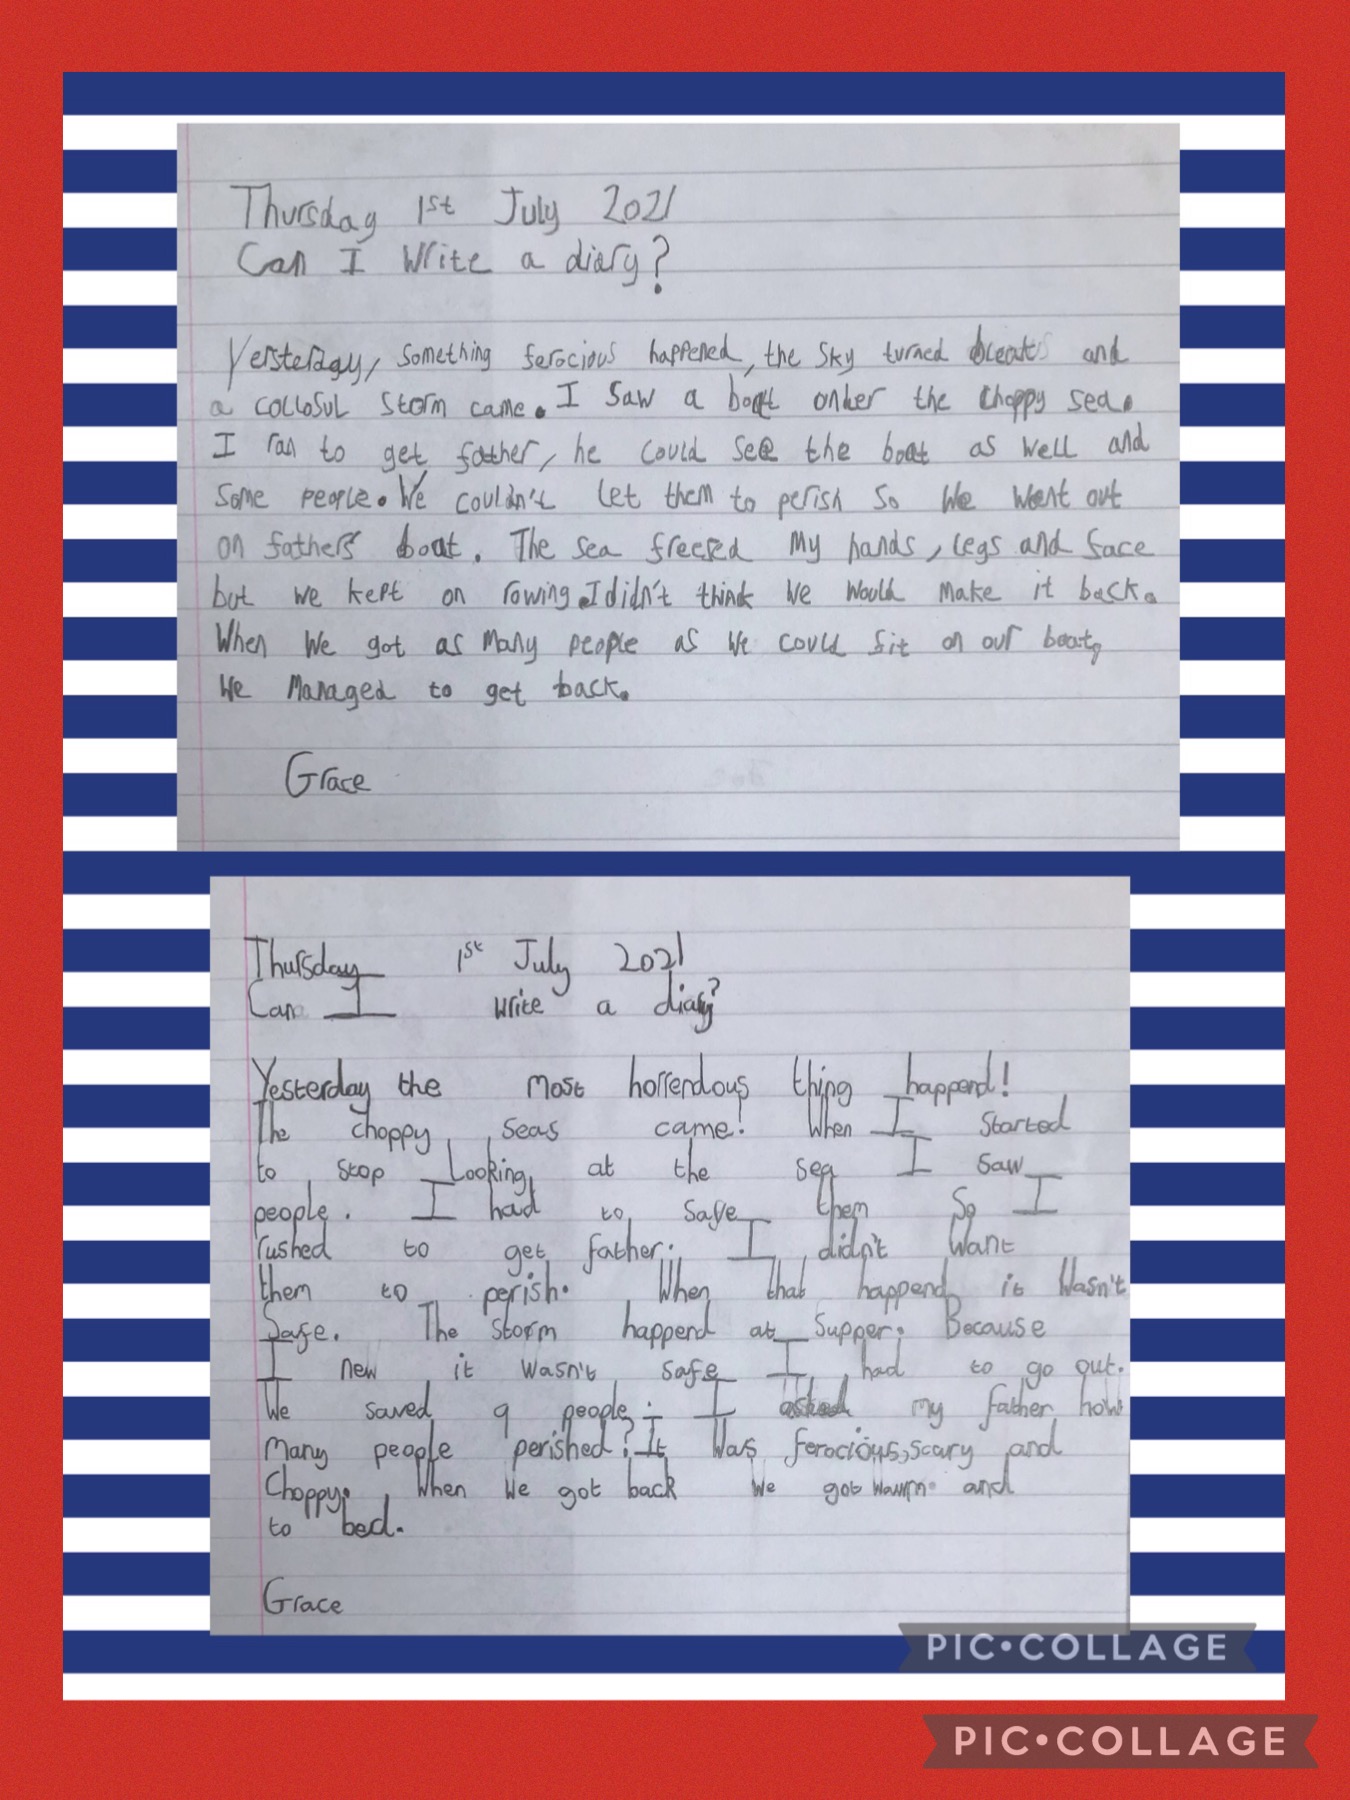 Thursday 1st July 2021
Can I write a diary?
Yersterday, something ferocious happened, the sky turned and
a collosul storm came. I saw a boat onher the choppy sea.
I ran to get father, he could see the boat as well and
some people. We couldn't let them to perish so we went out
on fathers boat. The sea freezed my hands, legs and face
but we kept on rowing. I didn't think we would make it back.
When we got as many people as we could fit on our boat,
we managed to get back.
Grace
Thursday 1st July 2021
Can I write a diary?
Yesterday the most horrendous thing happend!
The choppy seas came! When I started
to stop looking at the sea I saw
people. I had to safe them So I
rushed to get father. I didn't want
them to perish. When that happend it wasn't
Safe. The storm happend at supper. Because
I new it wasn't safe I had to go out.
We saved 9 people. I asked my father how
many people perished? It was ferocious, scary and
Choppy. When we got back we got warm. and
to bed.
Grace
PIC•COLLAGE
PIC•COLLAGE